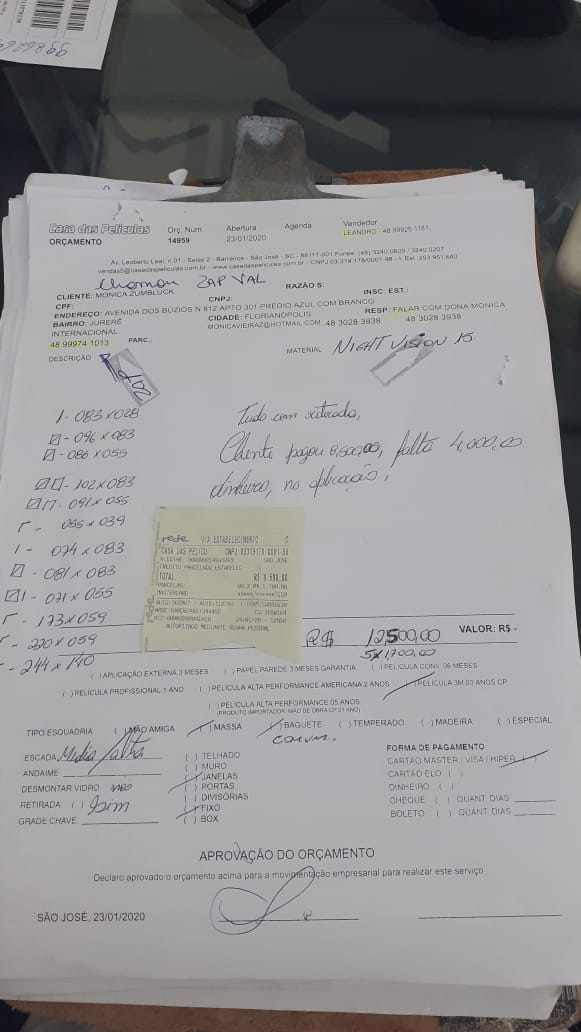 Casa das Películas
ORÇAMENTO
Orç. Núm
14959
Abertura
23/01/2020
Agenda
Vendedor
LEANDRO - 48 99925 1181
Av. Leoberto Leal, n 01 - Salas 2 - Barreiros - São José - SC - 88117-001 Fones: (48) 3240 0605 / 3240 0207
vendas5@casadaspeliculas.com.br - www.casadaspeliculas.com.br - CNPJ 03.319.178/0001-98 - I. Est: 253.951.640
ZAP VAL
CLIENTE: MONICA ZUMBLUCK
RAZÃO S:
CPF:
CNPJ:
INSC. EST.:
ENDEREÇO: AVENIDA DOS BÚZIOS N 812 APTO 301 PRÉDIO AZUL COM BRANCO
BAIRRO: JURERÊ
INTERNACIONAL
CIDADE: FLORIANÓPOLIS
RESP: FALAR COM DONA MONICA
MONICAVIEIRAZ@HOTMAIL.COM 48 3028 3938
48 3028 3938
48 99974 1013
PARC.:
DESCRIÇÃO
MATERIAL
NIGHT VISION 15
1 - 083 x 028
- 096 x 083
- 086 x 055
- 102 x 083
- 091 x 055
- 055 x 039
1 - 074 x 083
- 081 x 083
- 071 x 055
- 173 x 059
- 220 x 059
- 244 x 140
Tudo com retirada,
Cliente pagou 8,500,00, falta 4,000,00
dinheiro, no aplicação,
rede
VIA ESTABELECIMENTO
CASA DAS PELICU CNPJ:03319178/0001-98
SAO JOSE
CREDITO PARCELADO ESTABELEC
TOTAL: R$ 8.500,00
PARCELAS: 05 X R$ 1.700,00
MASTERCARD
AUTORIZADO MEDIANTE SENHA PESSOAL
rede
R$ 12,500,00
VALOR: R$ -
5x1,700,00
( ) APLICAÇÃO EXTERNA 3 MESES ( ) PAPEL PAREDE 3 MESES GARANTIA ( ) PELICULA CONV. 06 MESES
( ) PELÍCULA PROFISSIONAL 1 ANO ( ) PELÍCULA ALTA PERFORMANCE AMERICANA 2 ANOS ( ) PELÍCULA 3M 03 ANOS CP
( ) PELÍCULA ALTA PERFORMANCE 05 ANOS
(PRODUTO IMPORTADOR- MÃO DE OBRA CP 01 ANO)
TIPO ESQUADRIA ( ) MÃO AMIGA ( ) MASSA ( ) BAGUETE ( ) TEMPERADO ( ) MADEIRA ( ) ESPECIAL
ESCADA Media/alta
ANDAIME
DESMONTAR VIDRO não
RETIRADA: ( ) sim
GRADE CHAVE
( ) TELHADO
( ) MURO
( ) JANELAS
( ) PORTAS
( ) DIVISÓRIAS
( ) FIXO
( ) BOX
FORMA DE PAGAMENTO
CARTÃO MASTER / VISA / HIPER ( )
CARTÃO ELO ( )
DINHEIRO ( )
CHEQUE ( ) QUANT DIAS
BOLETO ( ) QUANT DIAS
APROVAÇÃO DO ORÇAMENTO
Declaro aprovado o orçamento acima para a movimentação empresarial para realizar este serviço
SÃO JOSÉ, 23/01/2020